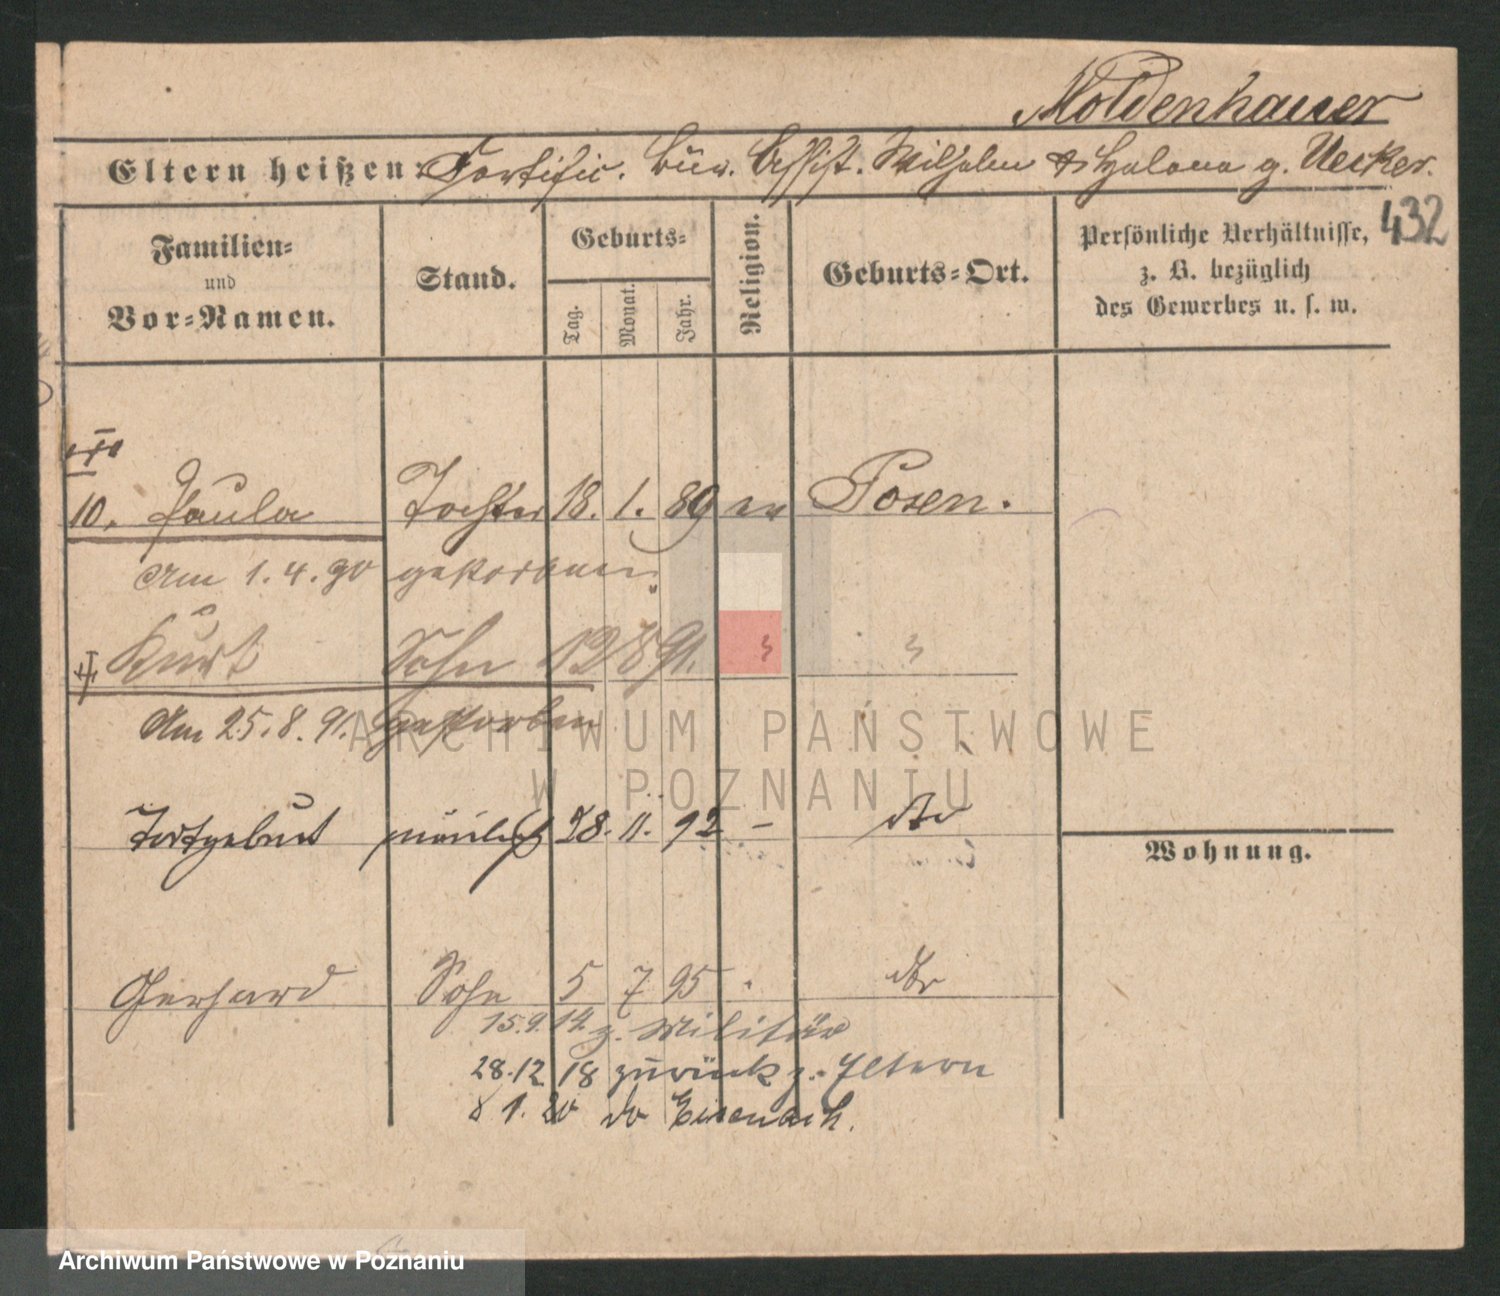 Moldenhauer
Eltern heißen: Fortific. Bür. Assist. Wilhelm & Helene g. Uecker.
432
Familien-
und
Vor-Namen.
Stand.
Geburts-
Tag. Monat. Jahr.
Religion.
Geburts-Ort.
Persönliche Verhältnisse,
z. B. bezüglich
des Gewerbes u. s. w.
10. Paula Tochter 18. 1. 89 ev Posen.
Am 1.4.90 gestorben.
Kurt Sohn 12 8 91. " "
Am 25.8.91. gestorben
ARCHIWUM PAŃSTWOWE
W POZNANIU
Todtgeburt männlich 28. 11. 92 – dto
Wohnung.
Gerhard Sohn 5 7 95 " dto
15.9.14. z. Militär
28.12 18 zurück z. Eltern
8 1. 20 do Eisenach.
Archiwum Państwowe w Poznaniu